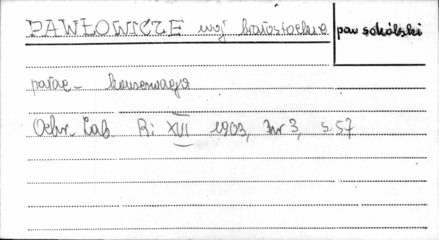 PAWŁOWICZE woj białostockie pow sokólski
pałac - konserwacja
Ochr. Zab. R: XVI 1963, nr 3, s. 57